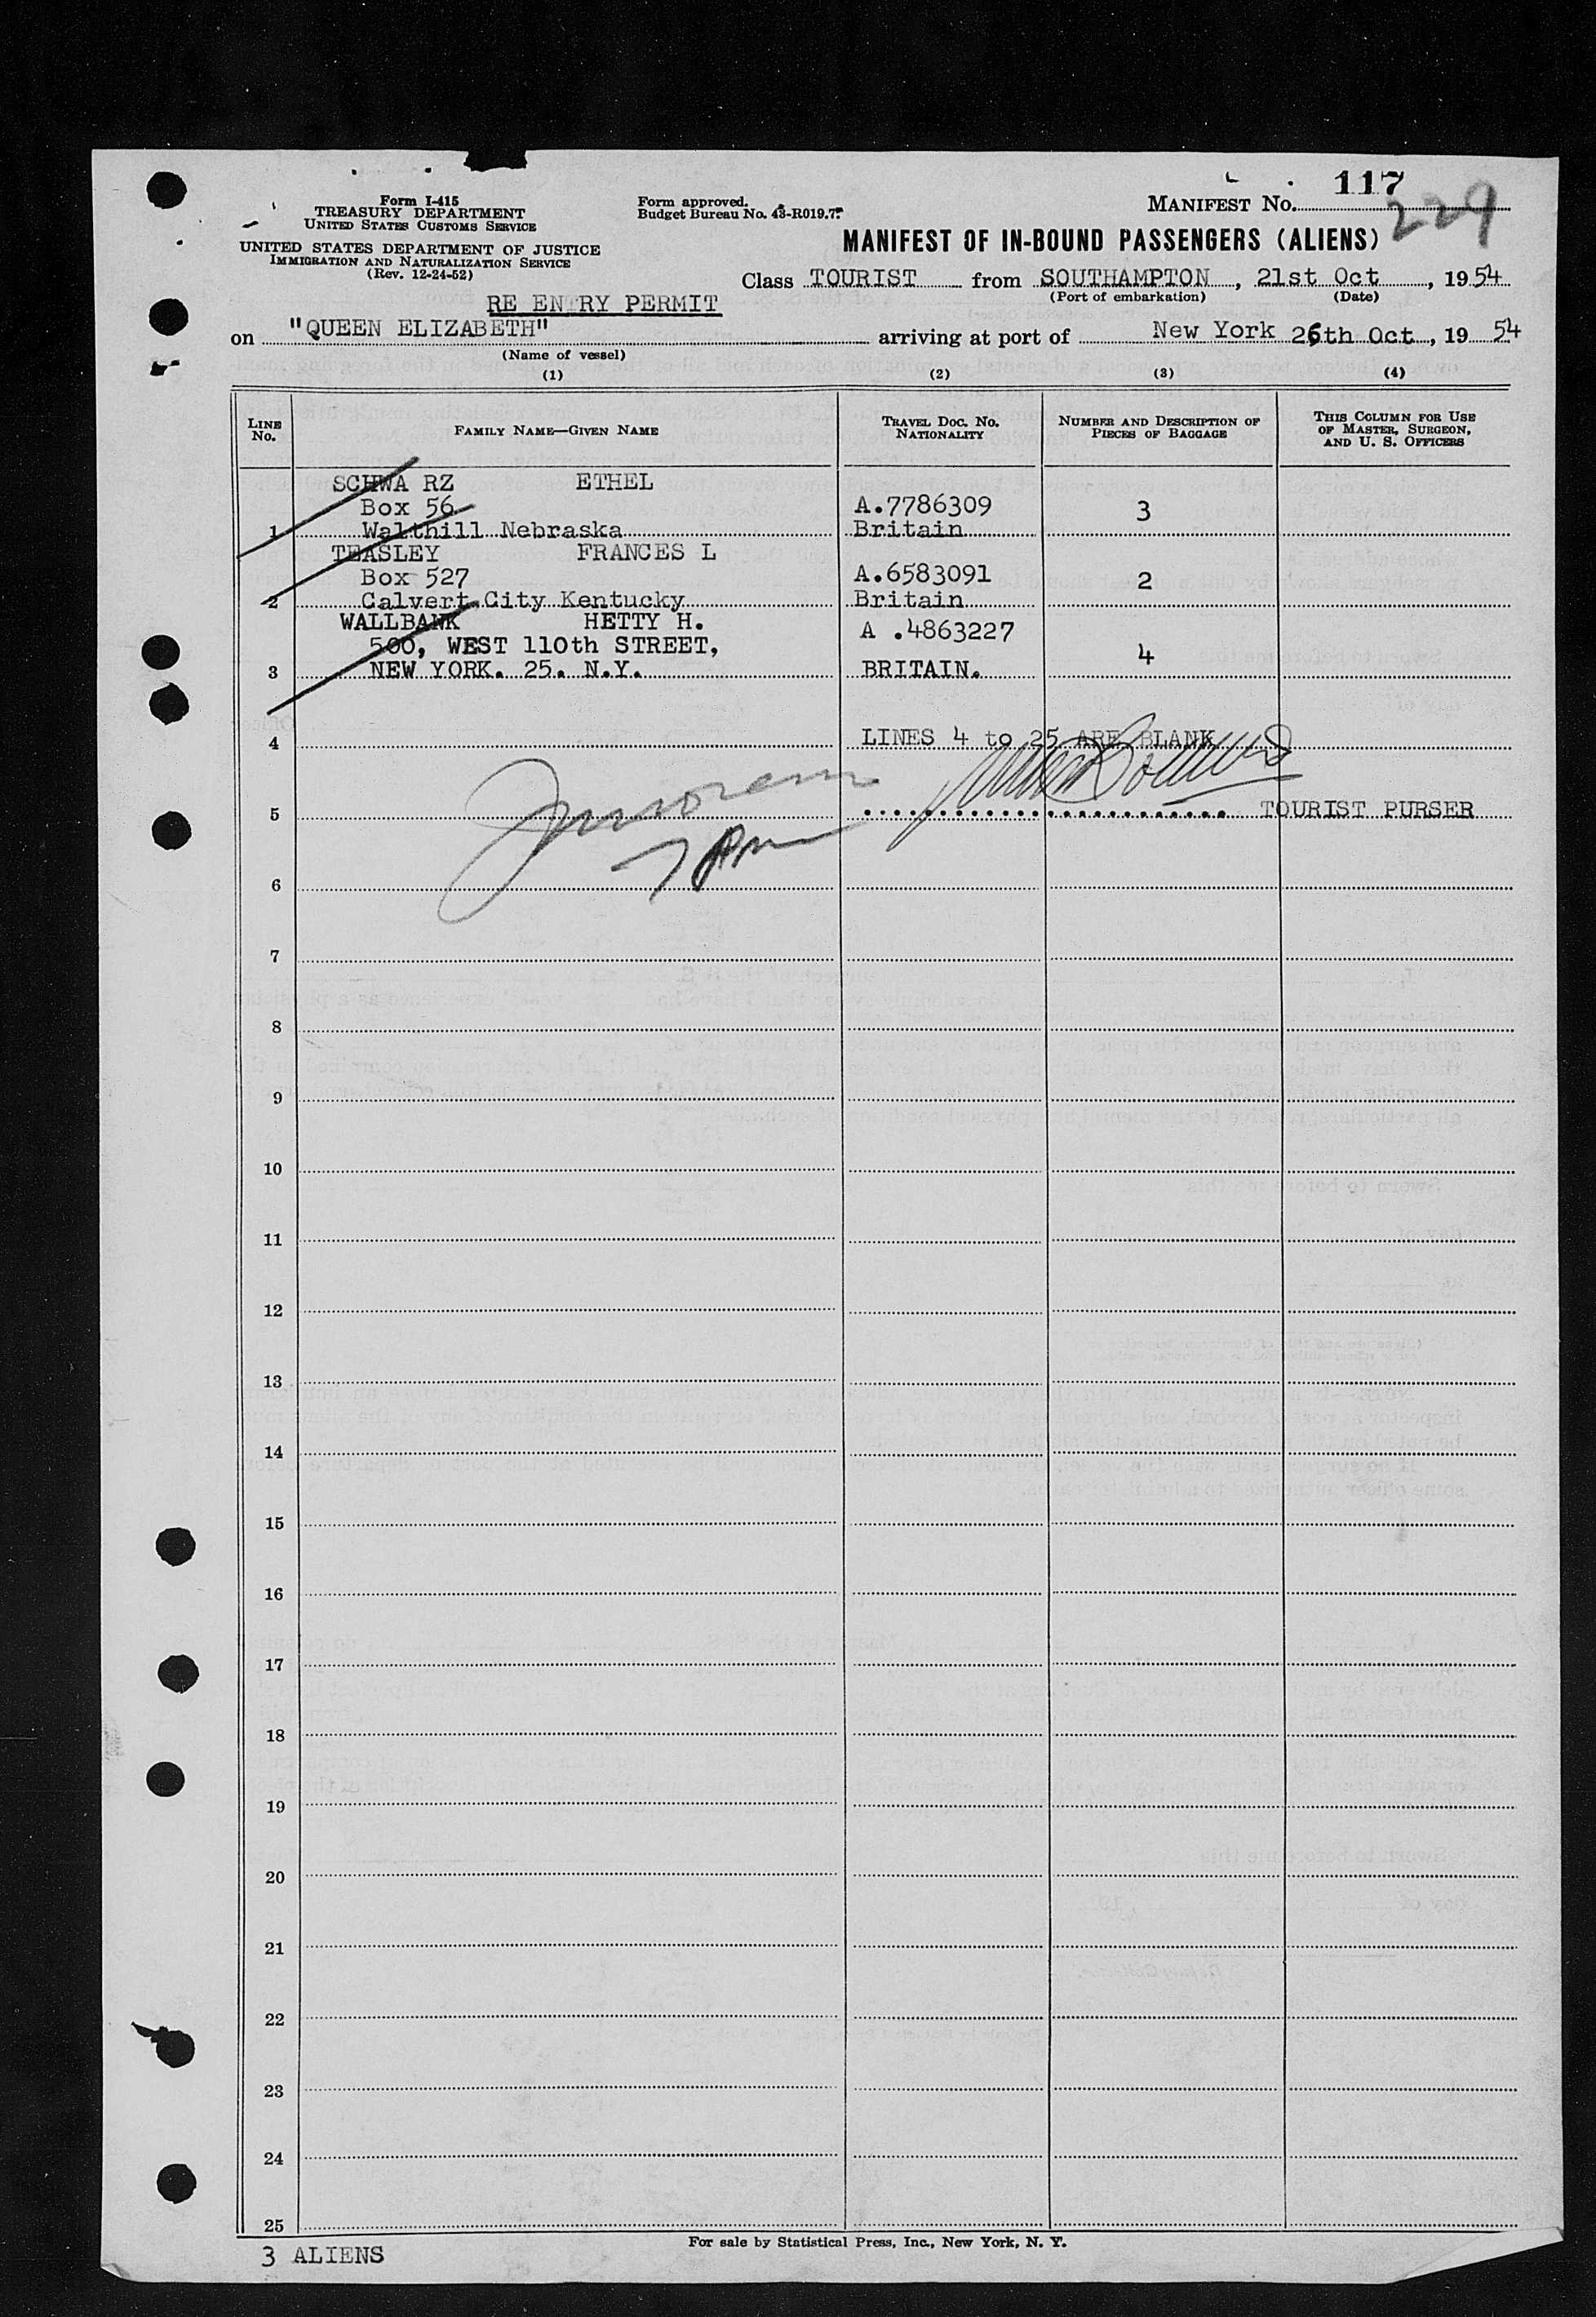 117
Form I-415
TREASURY DEPARTMENT
UNITED STATES CUSTOMS SERVICE
Form approved.
Budget Bureau No. 43-R019.7.
MANIFEST No. 229
UNITED STATES DEPARTMENT OF JUSTICE
IMMIGRATION AND NATURALIZATION SERVICE
(Rev. 12-24-52)
MANIFEST OF IN-BOUND PASSENGERS (ALIENS)
Class TOURIST from SOUTHAMPTON, 21st Oct, 1954
(Port of embarkation) (Date)
RE ENTRY PERMIT
on "QUEEN ELIZABETH" arriving at port of New York 26th Oct, 19 54
(Name of vessel)
(1) (2) (3) (4)
LINE No. FAMILY NAME—GIVEN NAME TRAVEL DOC. NO. NATIONALITY NUMBER AND DESCRIPTION OF PIECES OF BAGGAGE THIS COLUMN FOR USE OF MASTER, SURGEON, AND U. S. OFFICERS
SCHWA RZ ETHEL
Box 56 A.7786309 3
1 Walthill Nebraska Britain
TEASLEY FRANCES L
Box 527 A.6583091 2
2 Calvert City Kentucky Britain
WALLBANK HETTY H. A .4863227
500, WEST 110th STREET, 4
3 NEW YORK. 25. N.Y. BRITAIN.
4 LINES 4 to 25 ARE BLANK
5 TOURIST PURSER
6
7
8
9
10
11
12
13
14
15
16
17
18
19
20
21
22
23
24
25
For sale by Statistical Press, Inc., New York, N. Y.
3 ALIENS